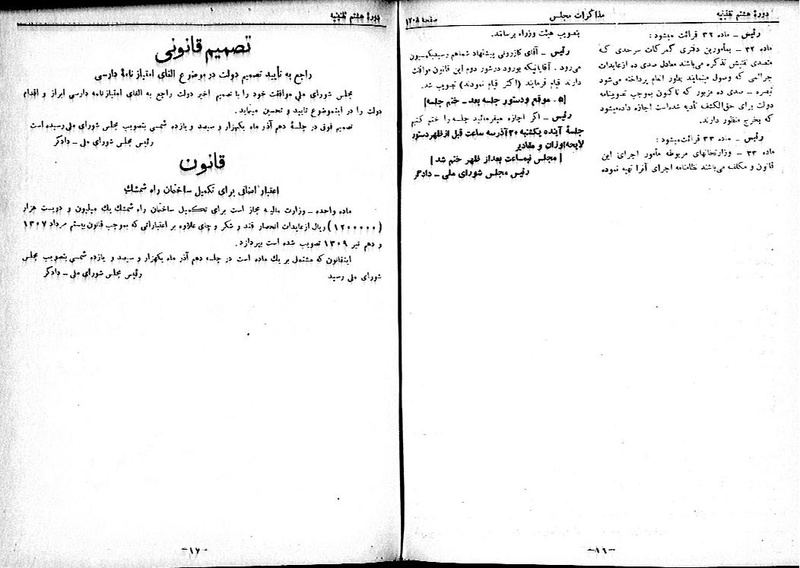 دورهٔ هشتم تقنینیه
مذاکرات مجلس
صفحه ۱۲۰۸
رئیس ـ ماده ۳۲ قرائت میشود:
ماده ۳۲ ـ بمأمورین دفتری گمرکات سرحدی که
متصدی تفتیش تذکره می‌باشند معادل صدی ده از عایدات
جرائمی که وصول مینمایند بطور انعام پرداخته می‌شود
تبصره ـ صدی ده مزبور که تاکنون بموجب تصویبنامه
دولت برای حق‌الکشف تأدیه شده‌است اجازه داده‌میشود
که بخرج منظور دارند.
رئیس ـ ماده ۳۳ قرائت‌میشود:
ماده ۳۳ ـ وزارتخانهای مربوطه مأمور اجرای این
قانون و مکلف می‌باشند نظامنامه اجرای آنرا تهیه نموده
بتصویب هیئت وزراء برسانند.
رئیس ـ آقای کازرونی پیشنهاد شما هم بکمیسیون
می‌رود. آقایانیکه بورود درشور دوم این قانون موافقت
دارند قیام فرمایند (اکثر قیام نمودند) تصویب شد.
[۵ ـ موقع ودستور جلسه بعد ـ ختم جلسه]
رئیس ـ اگر اجازه میفرمائید جلسه را ختم کنیم
جلسهٔ آینده یکشنبه ۲۰ آذر سه ساعت قبل از ظهر دستور
لایحه اوزان و مقادیر
[مجلس نیمساعت بعد از ظهر ختم شد]
رئیس مجلس شورای ملی ـ دادگر
ـ۱۶ـ
دورهٔ هشتم تقنینیه
تصمیم قانونی
راجع به تأیید تصمیم دولت در موضوع الغای امتیازنامهٔ دارسی
مجلس شورای ملی موافقت خود را با تصمیم اخیر دولت راجع به الغای امتیازنامه دارسی ابراز و اقدام
دولت را در این‌موضوع تایید و تحسین مینماید.
تصمیم فوق در جلسهٔ دهم آذر ماه یکهزار و سیصد و یازده شمسی بتصویب مجلس شورای ملی رسیده است
رئیس مجلس شورای ملی ـ دادگر
قانون
اعتبار اضافی برای تکمیل ساختمان راه شمشك
ماده واحده ـ وزارت مالیه مجاز است برای تکمیل ساختمان راه شمشك یك میلیون و دویست هزار
(۱۲۰۰۰۰۰) ریال از عایدات انحصار قند و شکر و چای علاوه بر اعتباراتی که بموجب قانون بیستم مرداد ۱۳۰۷
و دهم تیر ۱۳۰۹ تصویب شده است بپردازد.
این‌قانون که مشتمل بر یك ماده است در جلسه دهم آذر ماه یکهزار و سیصد و یازده شمسی بتصویب مجلس
شورای ملی رسید
رئیس مجلس شورای ملی ـ دادگر
ـ۱۷ـ